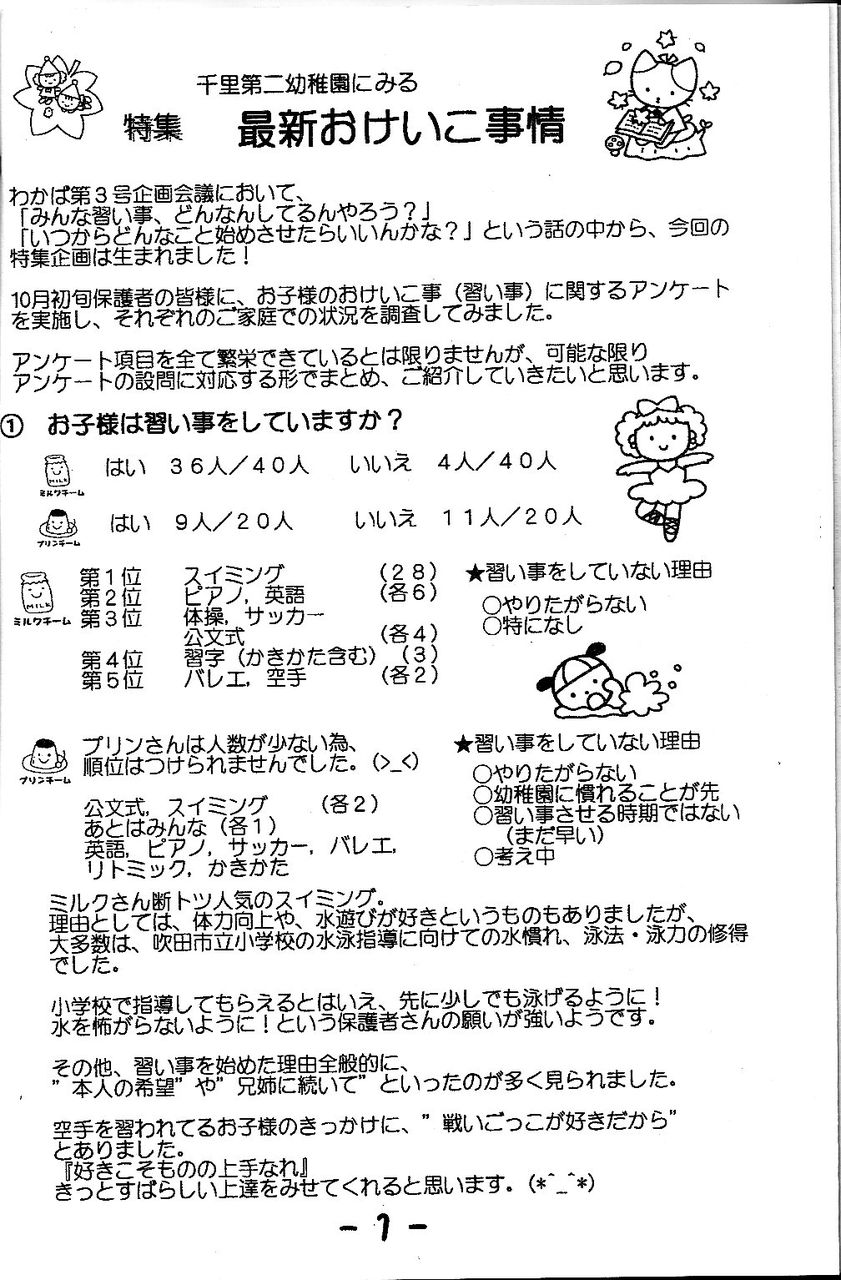 千里第二幼稚園にみる
特集 最新おけいこ事情
わかば第3号企画会議において、
「みんな習い事、どんなんしてるんやろう？」
「いつからどんなこと始めさせたらいいんかな？」という話の中から、今回の
特集企画は生まれました！
10月初旬保護者の皆様に、お子様のおけいこ事（習い事）に関するアンケート
を実施し、それぞれのご家庭での状況を調査してみました。
アンケート項目を全て繁栄できているとは限りませんが、可能な限り
アンケートの設問に対応する形でまとめ、ご紹介していきたいと思います。
① お子様は習い事をしていますか？
MILK
ミルクチーム
はい 36人／40人 いいえ 4人／40人
プリンチーム
はい 9人／20人 いいえ 11人／20人
MILK
ミルクチーム
第1位 スイミング （28）
第2位 ピアノ，英語 （各6）
第3位 体操，サッカー
公文式 （各4）
第4位 習字（かきかた含む） （3）
第5位 バレエ，空手 （各2）
★習い事をしていない理由
○やりたがらない
○特になし
プリンチーム
プリンさんは人数が少ない為、
順位はつけられませんでした。(>_<)
公文式，スイミング （各2）
あとはみんな（各1）
英語，ピアノ，サッカー，バレエ，
リトミック，かきかた
★習い事をしていない理由
○やりたがらない
○幼稚園に慣れることが先
○習い事させる時期ではない
（まだ早い）
○考え中
ミルクさん断トツ人気のスイミング。
理由としては、体力向上や、水遊びが好きというものもありましたが、
大多数は、吹田市立小学校の水泳指導に向けての水慣れ、泳法・泳力の修得
でした。
小学校で指導してもらえるとはいえ、先に少しでも泳げるように！
水を怖がらないように！という保護者さんの願いが強いようです。
その他、習い事を始めた理由全般的に、
”本人の希望”や”兄姉に続いて”といったのが多く見られました。
空手を習われてるお子様のきっかけに、”戦いごっこが好きだから”
とありました。
『好きこそものの上手なれ』
きっとすばらしい上達をみせてくれると思います。(*^_^*)
- 1 -